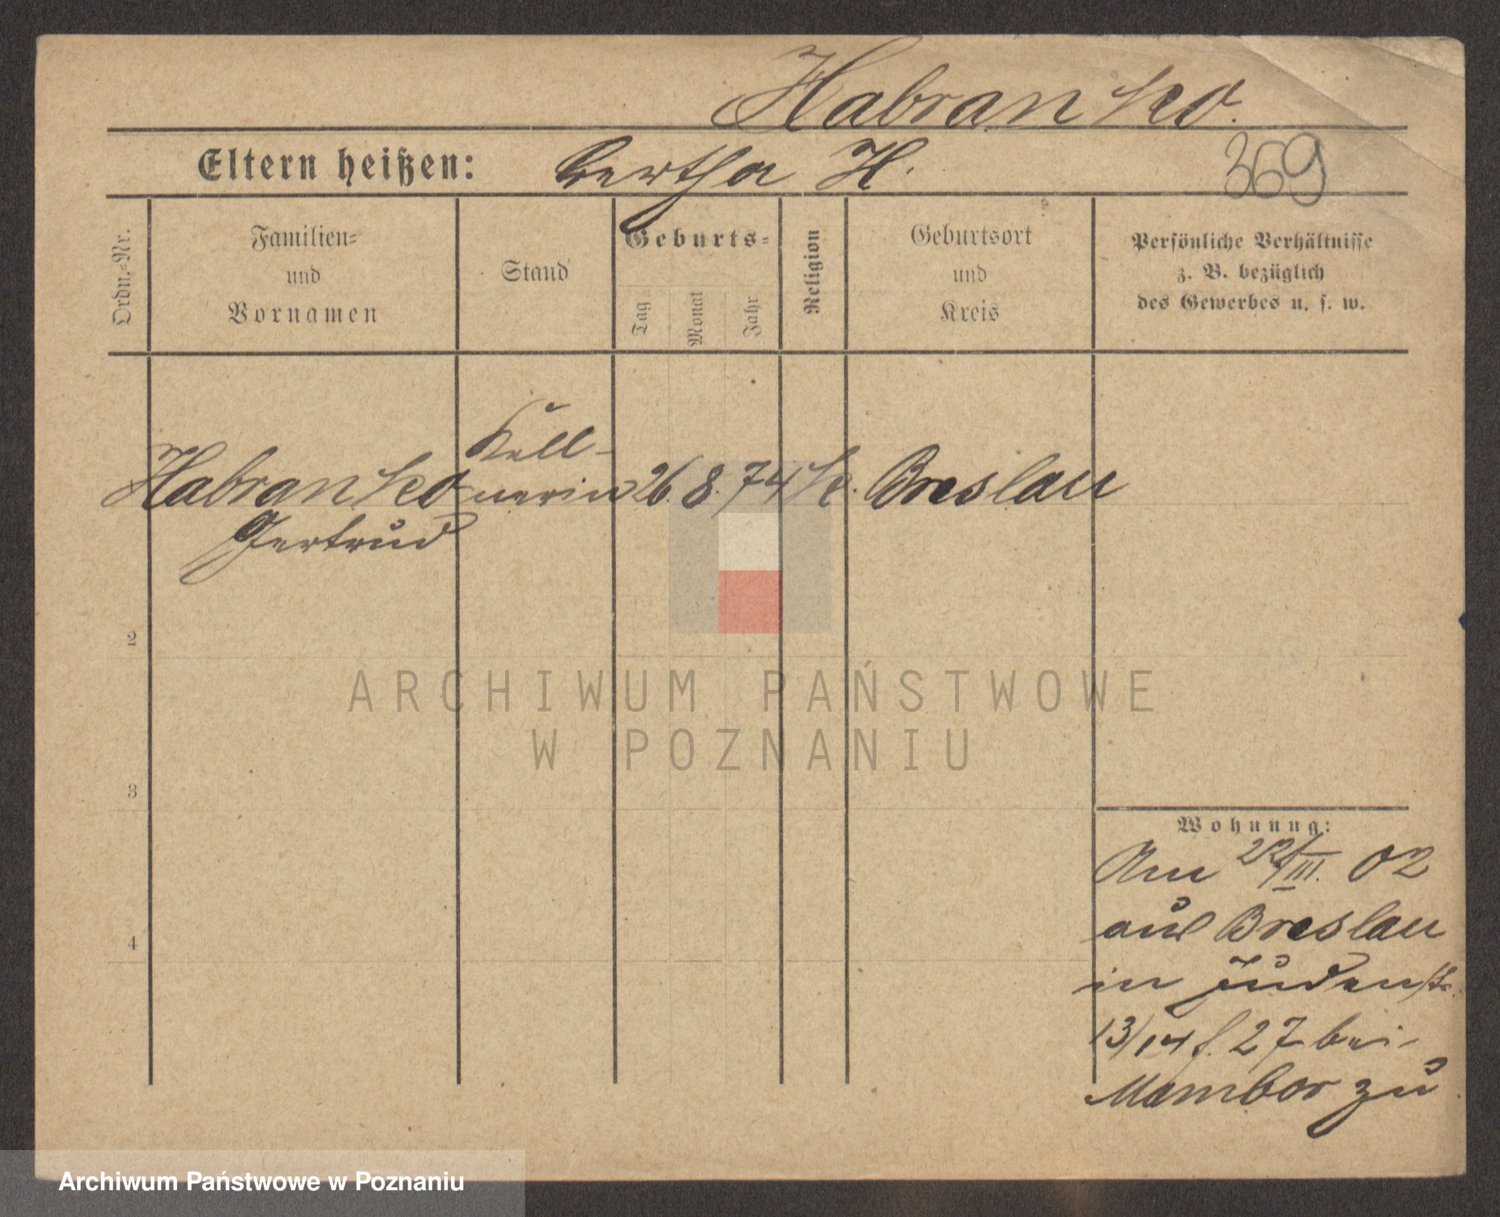 Habranko.
Eltern heißen: Bertha H.
369
Ordn.-Nr.
Familien-
und
Vornamen
Stand
Geburts-
Tag
Monat
Jahr
Religion
Geburtsort
und
Kreis
Persönliche Verhältnisse
z. B. bezüglich
des Gewerbes u. s. w.
Kell-
Habranko nerin 26. 8. 74 k. Breslau
Gertrud
2
ARCHIWUM PAŃSTWOWE
W POZNANIU
3
Wohnung:
Am 22/III. 02
aus Breslau
4
in Judenstr.
13/14 f. 27 bei
zu
Archiwum Państwowe w Poznaniu